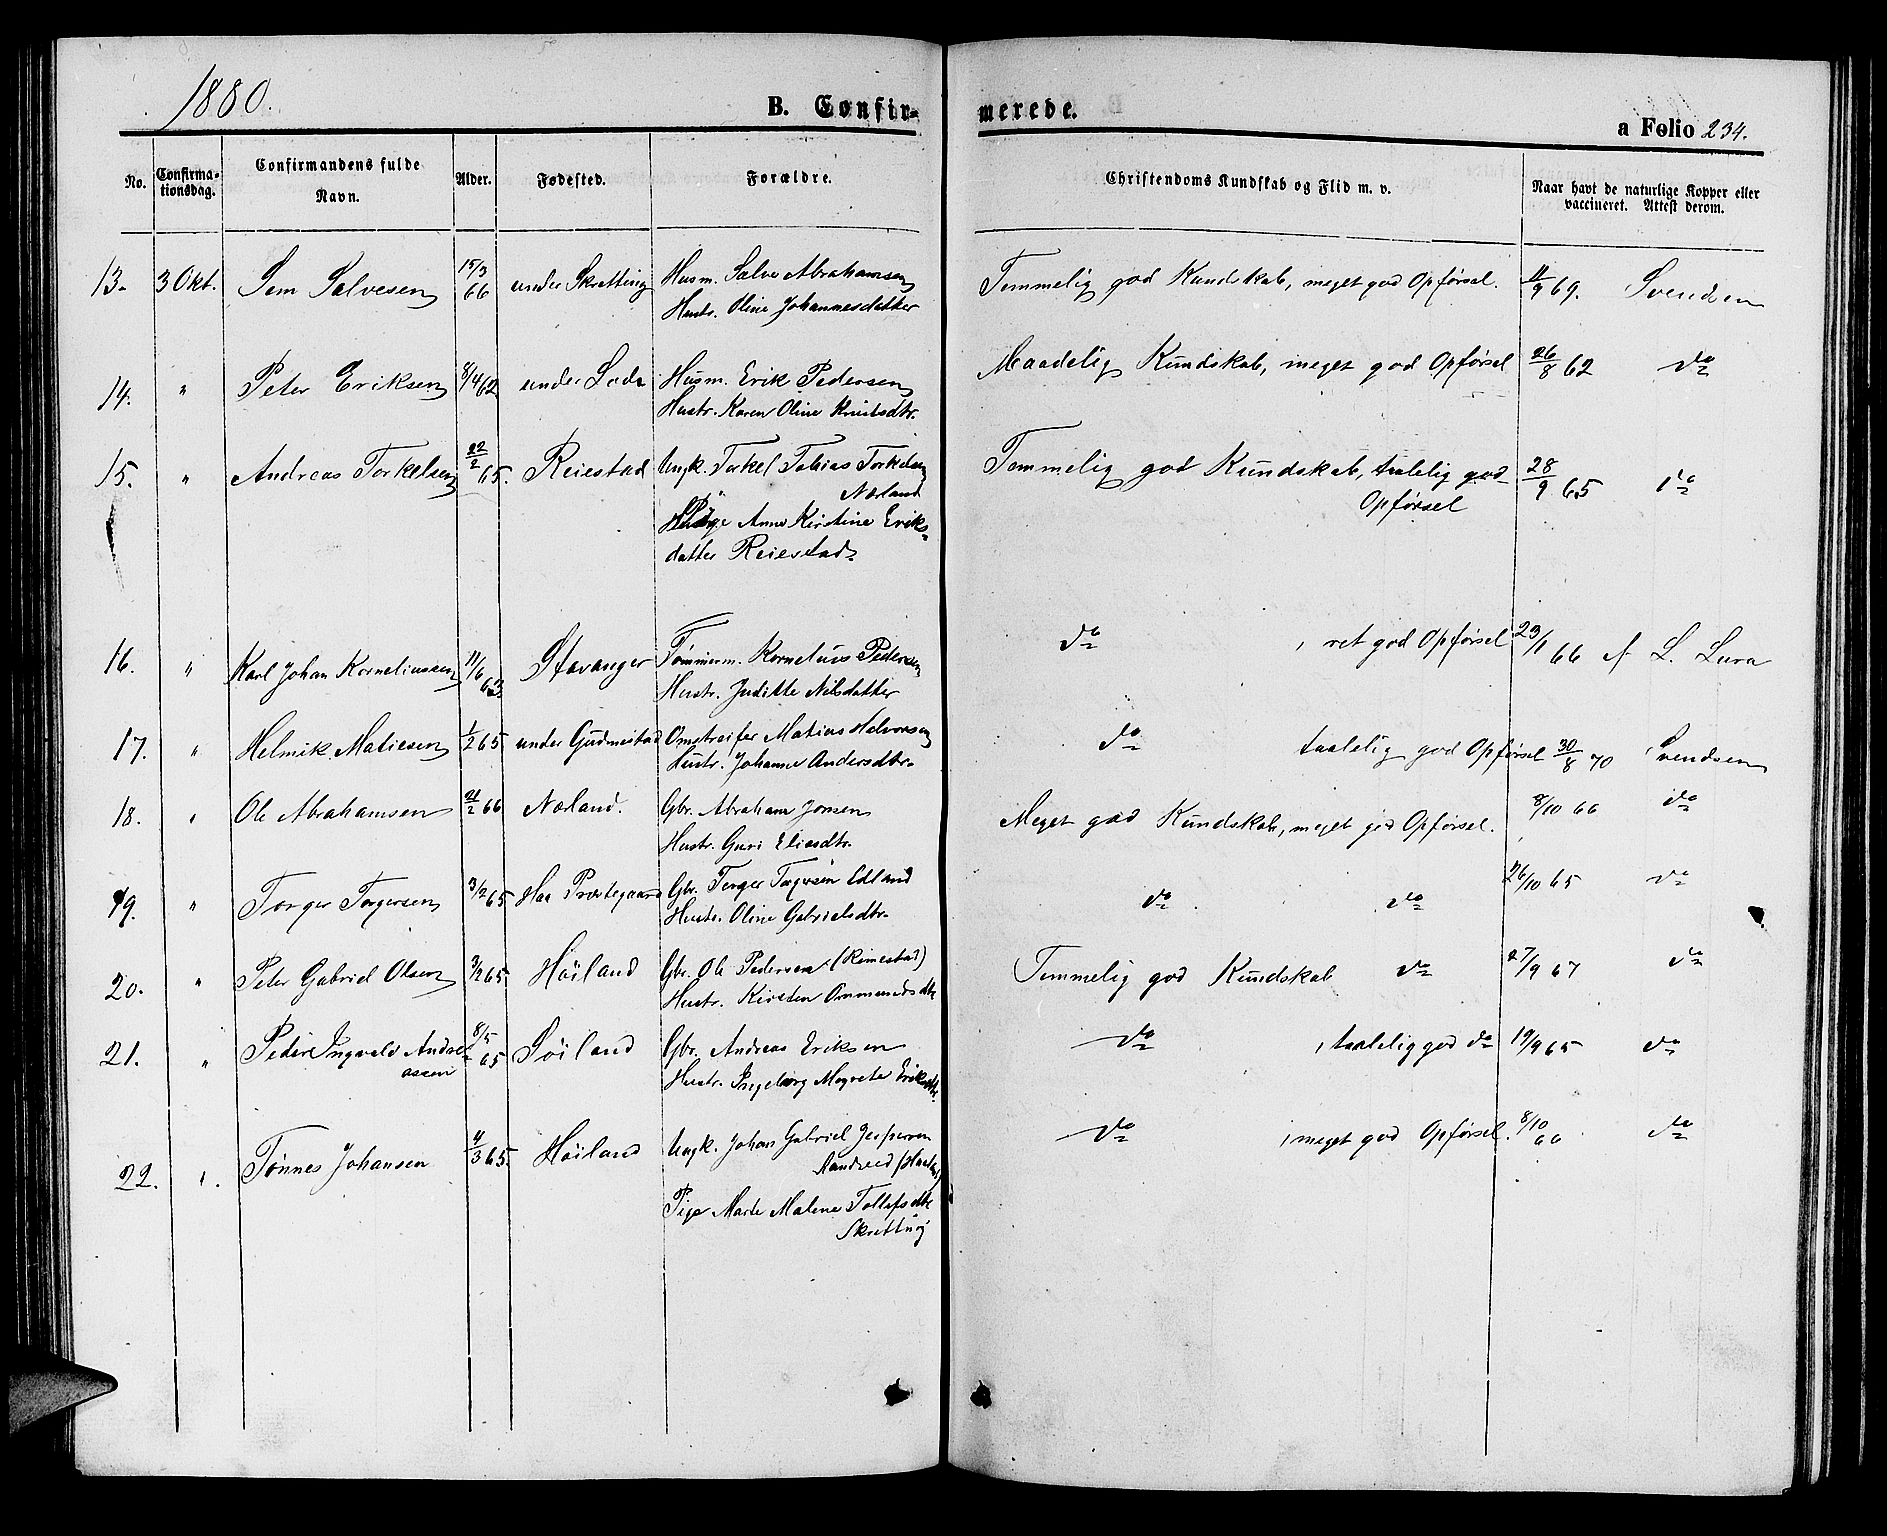 1880.
B. Confir-
merede.
a Folio 234.
No.
Confirma-
tionsdag.
Confirmandens fulde
Navn.
Alder.
Fødested.
Forældre.
Christendoms Kundskab og Flid m. v.
Naar havt de naturlige Kopper eller
vaccineret. Attest derom.
13. 3 Okt. Sem Salvesen 15/3 66 under Skretting Husm. Salve Abrahamsen
Hustr. Oline Johannesdatter
Temmelig god Kundskab, meget god Opførsel. 11/9 69. Svendsen
14. " Peter Eriksen 8/4 62 under Lode Husm. Erik Pedersen
Hustr. Karen Oline Knutsdtr.
Maadelig Kundskab, meget god Opførsel 26/8 62 do
15. " Andreas Torkelsen 22/2 65. Reiestad Ungk. Torkel Tobias Torkelsen
Nærland
Pige Anne Kirstine Eriks-
datter Reiestad
Temmelig god Kundskab, taalelig god
Opførsel
28/9 65 do
16. " Karl Johan Korneliussen 11/6 63 Stavanger Tømmerm. Kornelius Pedersen
Hustr. Juditte Nilsdatter
do , ret god Opførsel 23/1 66 af L. Lura
17. " Helmik Matiesen 1/2 65 under Gudmestad Omstreifer Matias Helvorsen
Hustr. Johanne Andersdtr.
do taalelig god Opførsel 30/8 70 Svendsen
18. " Ole Abrahamsen 21/2 66 Næland. Gbr. Abraham Jonsen
Hustr. Guri Eliasdtr.
Meget god Kundskab, meget god Opførsel. 8/10 66 do
19. " Torger Torgersen 3/2 65 Haa Præstegaard Gbr. Torger Torgersen Edland
Hustr. Oline Gabrielsdtr.
do do 26/10 65 do
20. " Peter Gabriel Olsen 3/2 65 Høiland Gbr. Ole Pedersen (Rimestad)
Hustr. Kirsten Ommundsdtr
Temmelig god Kundskab do 27/9 67 do
21. " Peder Ingvald Andre-
assen
8/5 65 Søiland Gbr. Andreas Eriksen
Hustr. Ingeborg Magrete Eriksdtr.
do , taalelig god do 19/9 65 do
22. " Tønnes Johansen 4/3 65. Høiland Ungk. Johan Gabriel Jespersen
Pige Marte Malene Tollefsdtr
Skretting
do , meget god Opførsel. 8/10 66 do